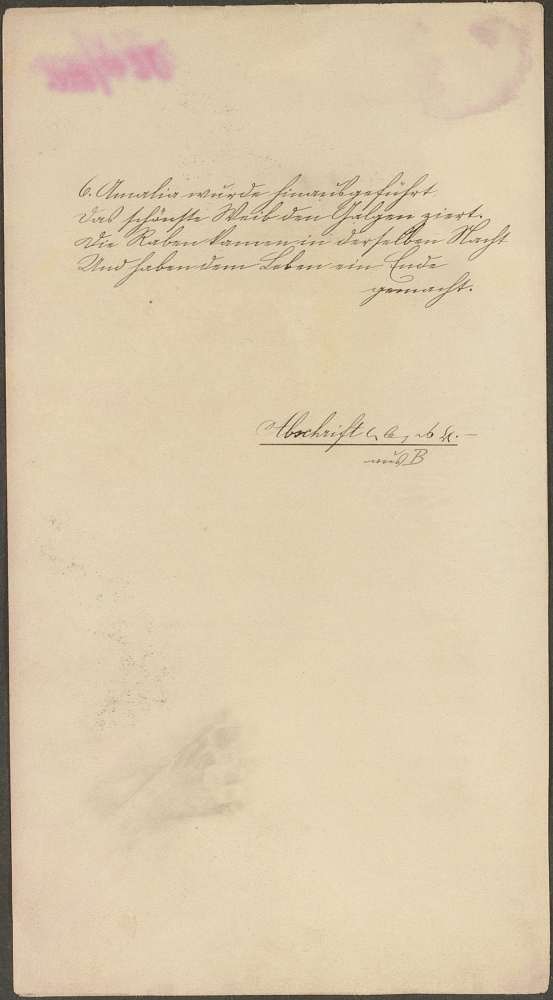 6. Amalia wurde hinausgeführt
Das schönste Weib den Galgen ziert.
Die Raben kamen in derselben Nacht
Und haben dem Leben ein Ende
gemacht.
Abschrift
aus B